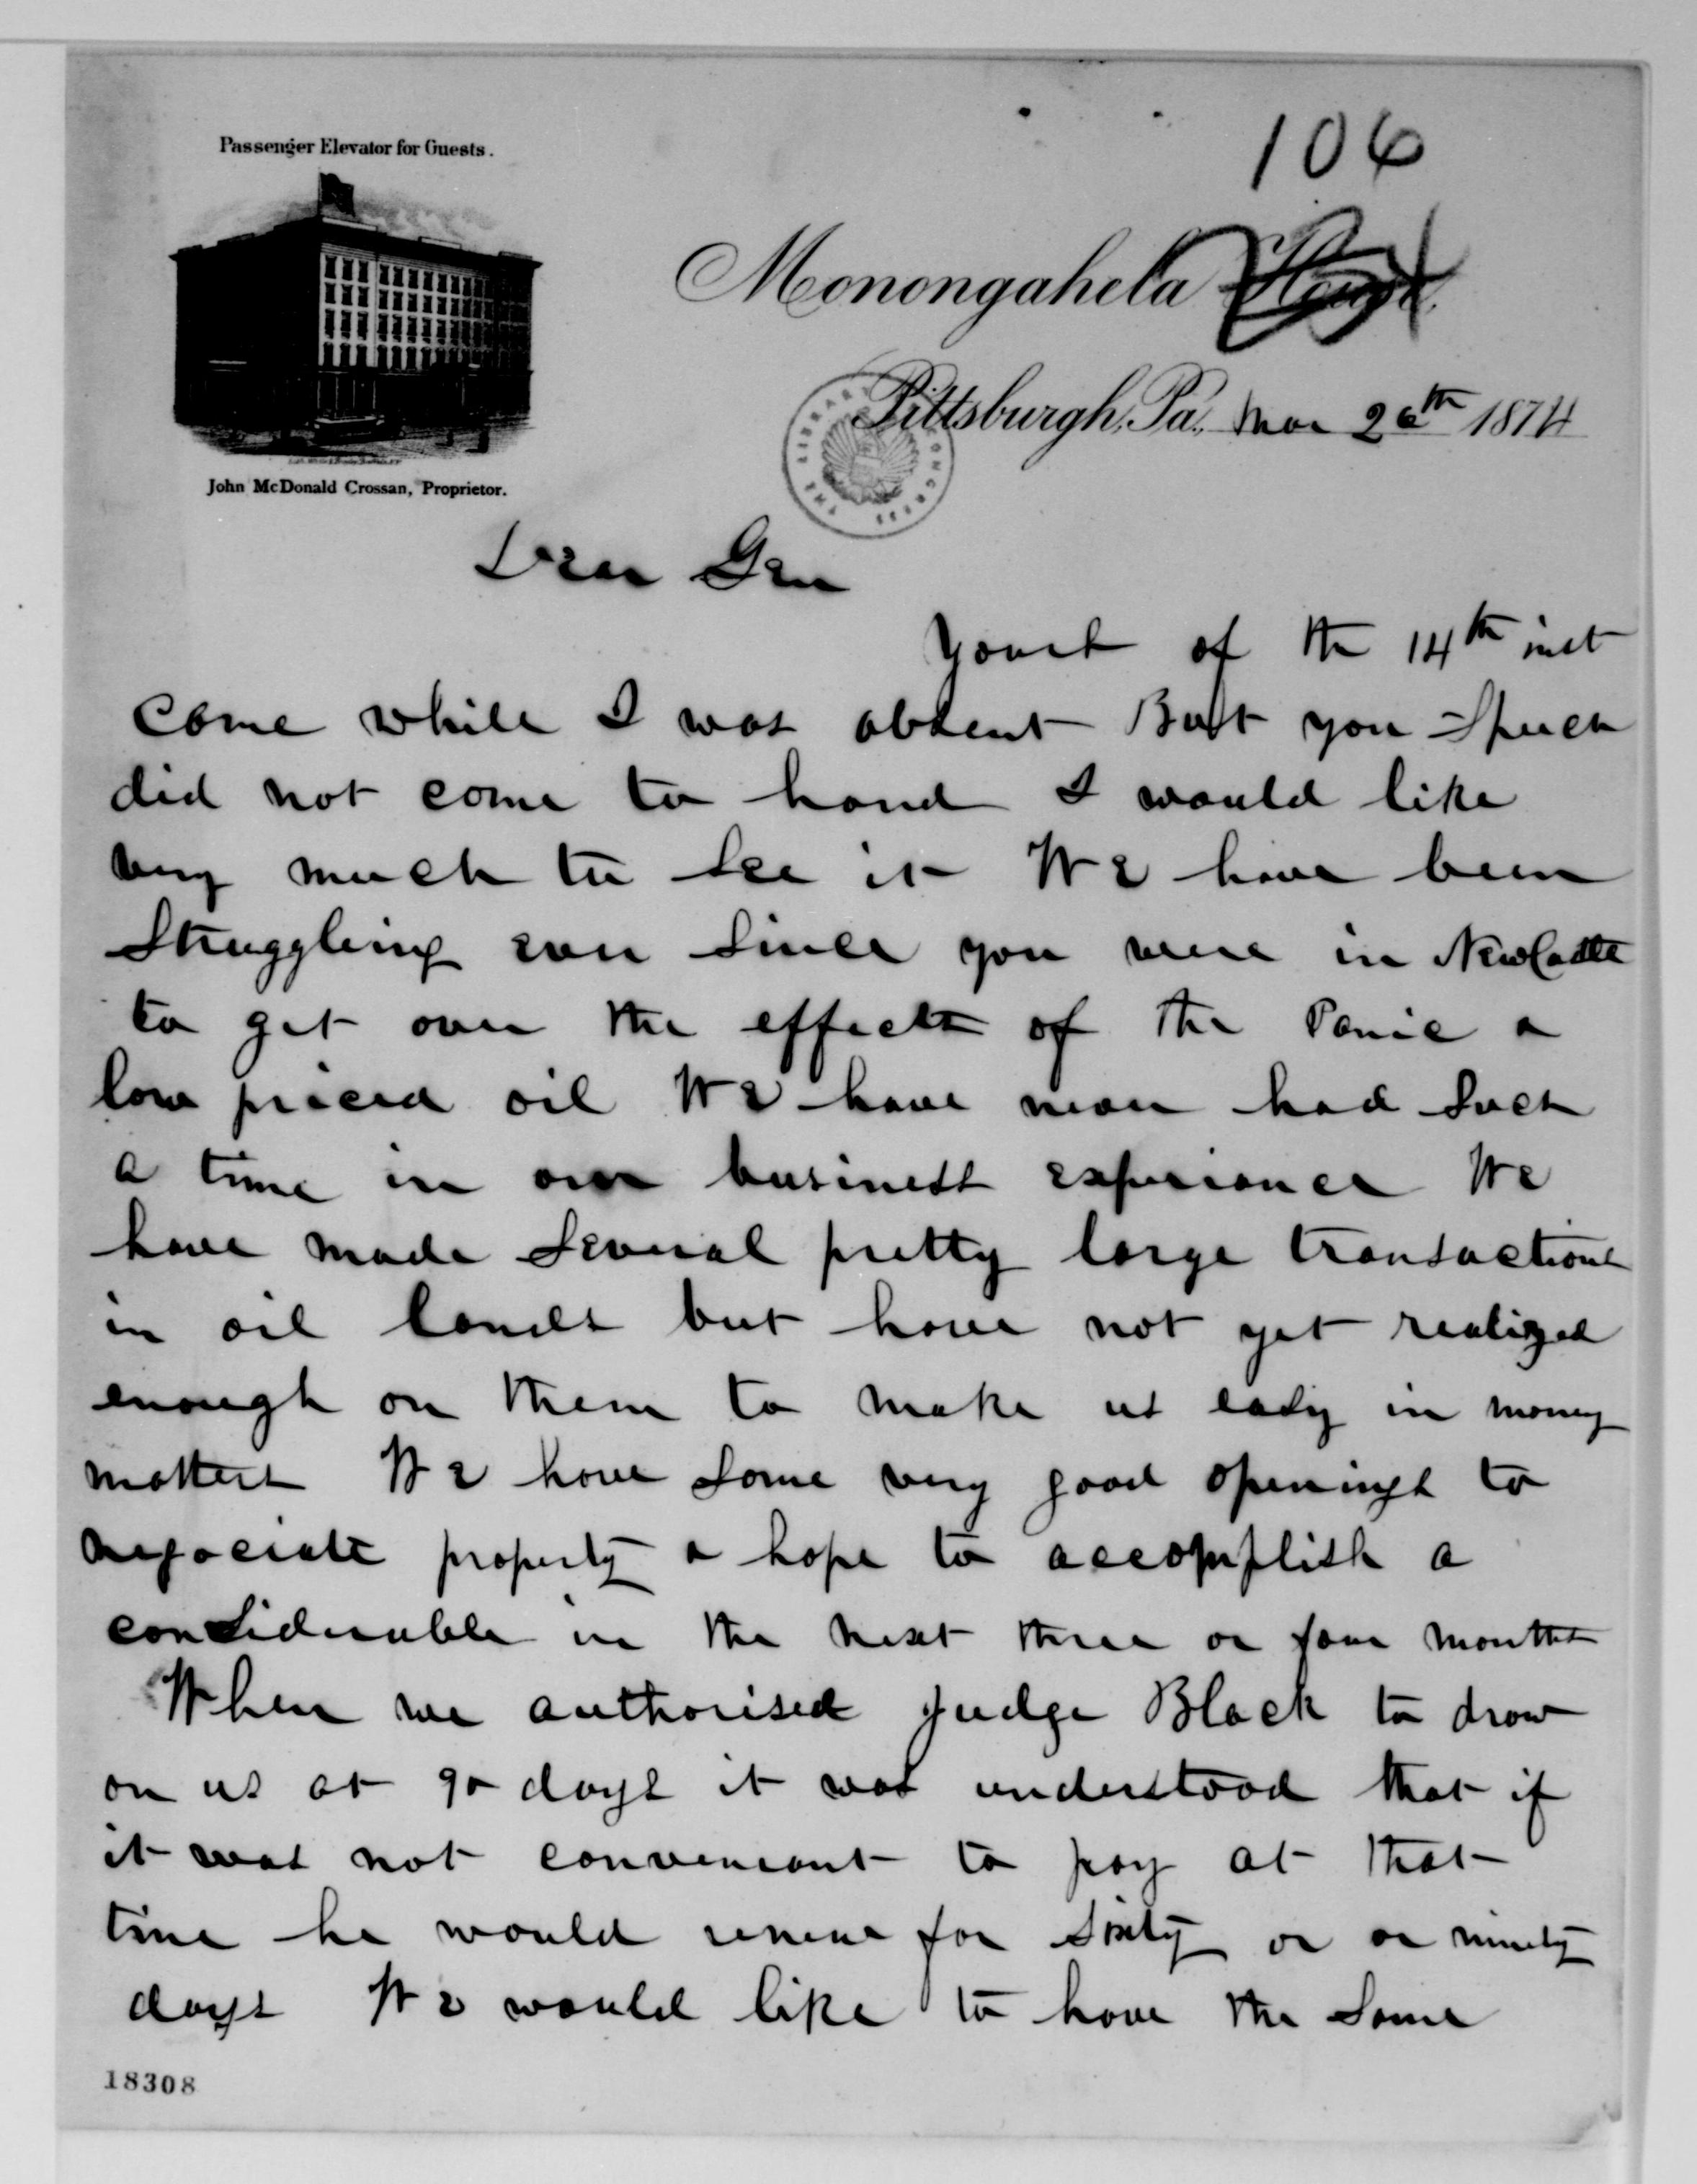 106
Passenger Elevator for Guests.
Monongahela House.
Pittsburgh, Pa., Mar 26th 1874
THE LIBRARY CONGRESS
John McDonald Crossan, Proprietor.
Dear Gen
Yours of the 14th inst
came while I was absent But you Speech
did not come to hand I would like
very much to see it We have been
struggling ever since you were in NewCastle
to get over the effects of the Panic &
low priced oil We have never had such
a time in our business experiance We
have made several pretty large transactions
in oil lands but have not yet realized
enough on them to make us easy in money
matters We have some very good openings to
negociate property & hope to accomplish a
considerable in the next three or four months
When we authorised Judge Black to draw
on us at 90 days it was understood that if
it was not conveniant to pay at that
time he would renew for sixty or or ninety
days We would like to have the same
18308